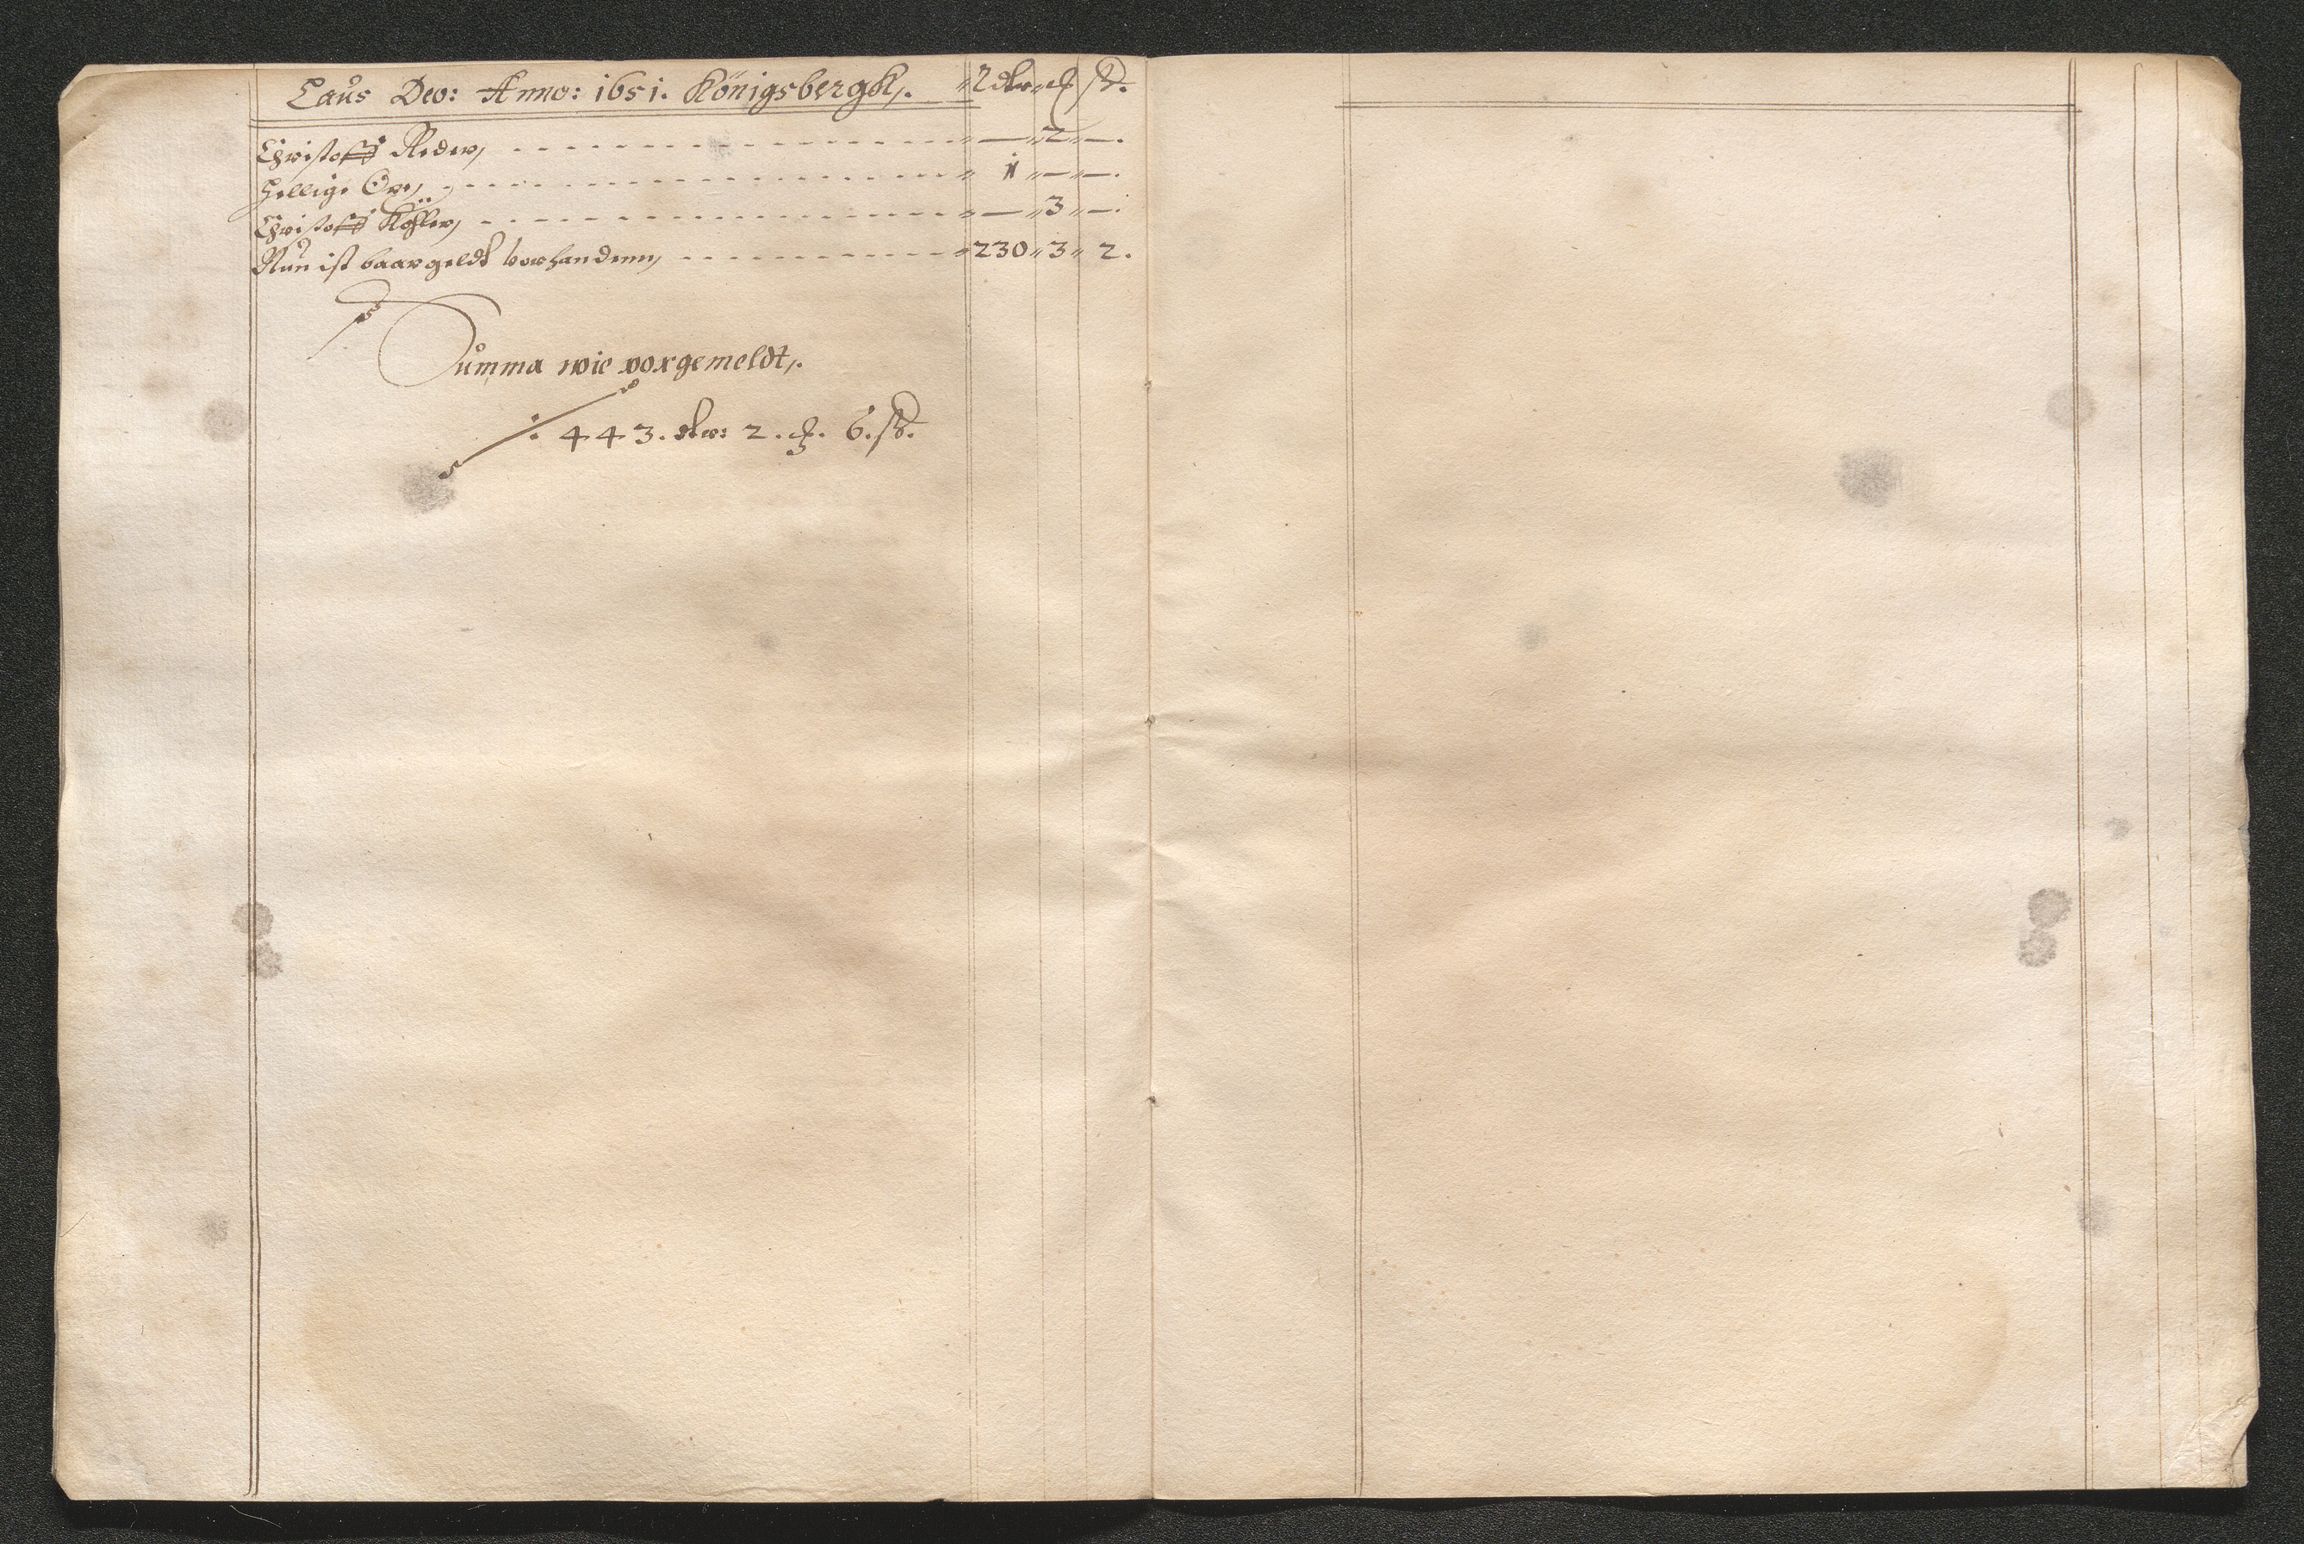 Laus Deo: Anno: 1651. Königsbergk,. Rdlr ß.
Christoff Reder, — 2 —.
Hellige Ore, 1 — —.
Christoff Köhler, — 3 —.
Nun ist baar geldt vorhandenn, 230 3 2.
Summa wie vorgemeldt,.
443. dlr: 2. 6. ß.